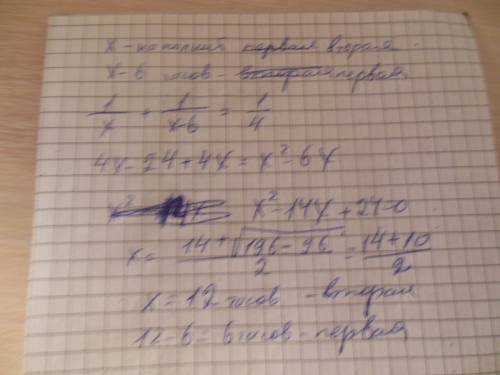 x - наполнит вторая
x-6 часов - первая
1/x + 1/x-6 = 1/4
4x-24+4x=x²-6x
x²-14x+24=0
x= 14+√196-96 / 2 = 14+10 / 2
x=12 часов - вторая
12-6=6 часов - первая